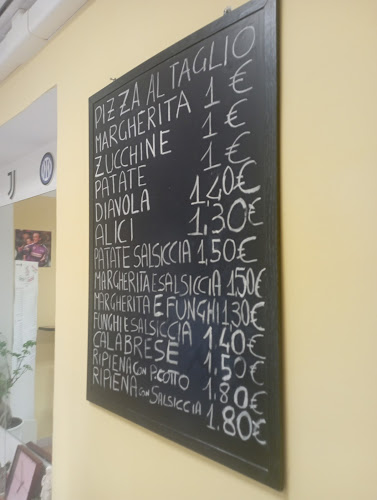 PIZZA AL TAGLIO
MARGHERITA 1 €
ZUCCHINE 1 €
PATATE 1 €
DIAVOLA 1,40€
ALICI 1,30€
PATATE SALSICCIA 1,50€
MARGHERITA E SALSICCIA 1,50€
MARGHERITA E FUNGHI 1,30€
FUNGHI E SALSICCIA 1,40€
CALABRESE 1.50€
RIPIENA CON P.COTTO 1.80€
RIPIENA CON SALSICCIA 1.80€